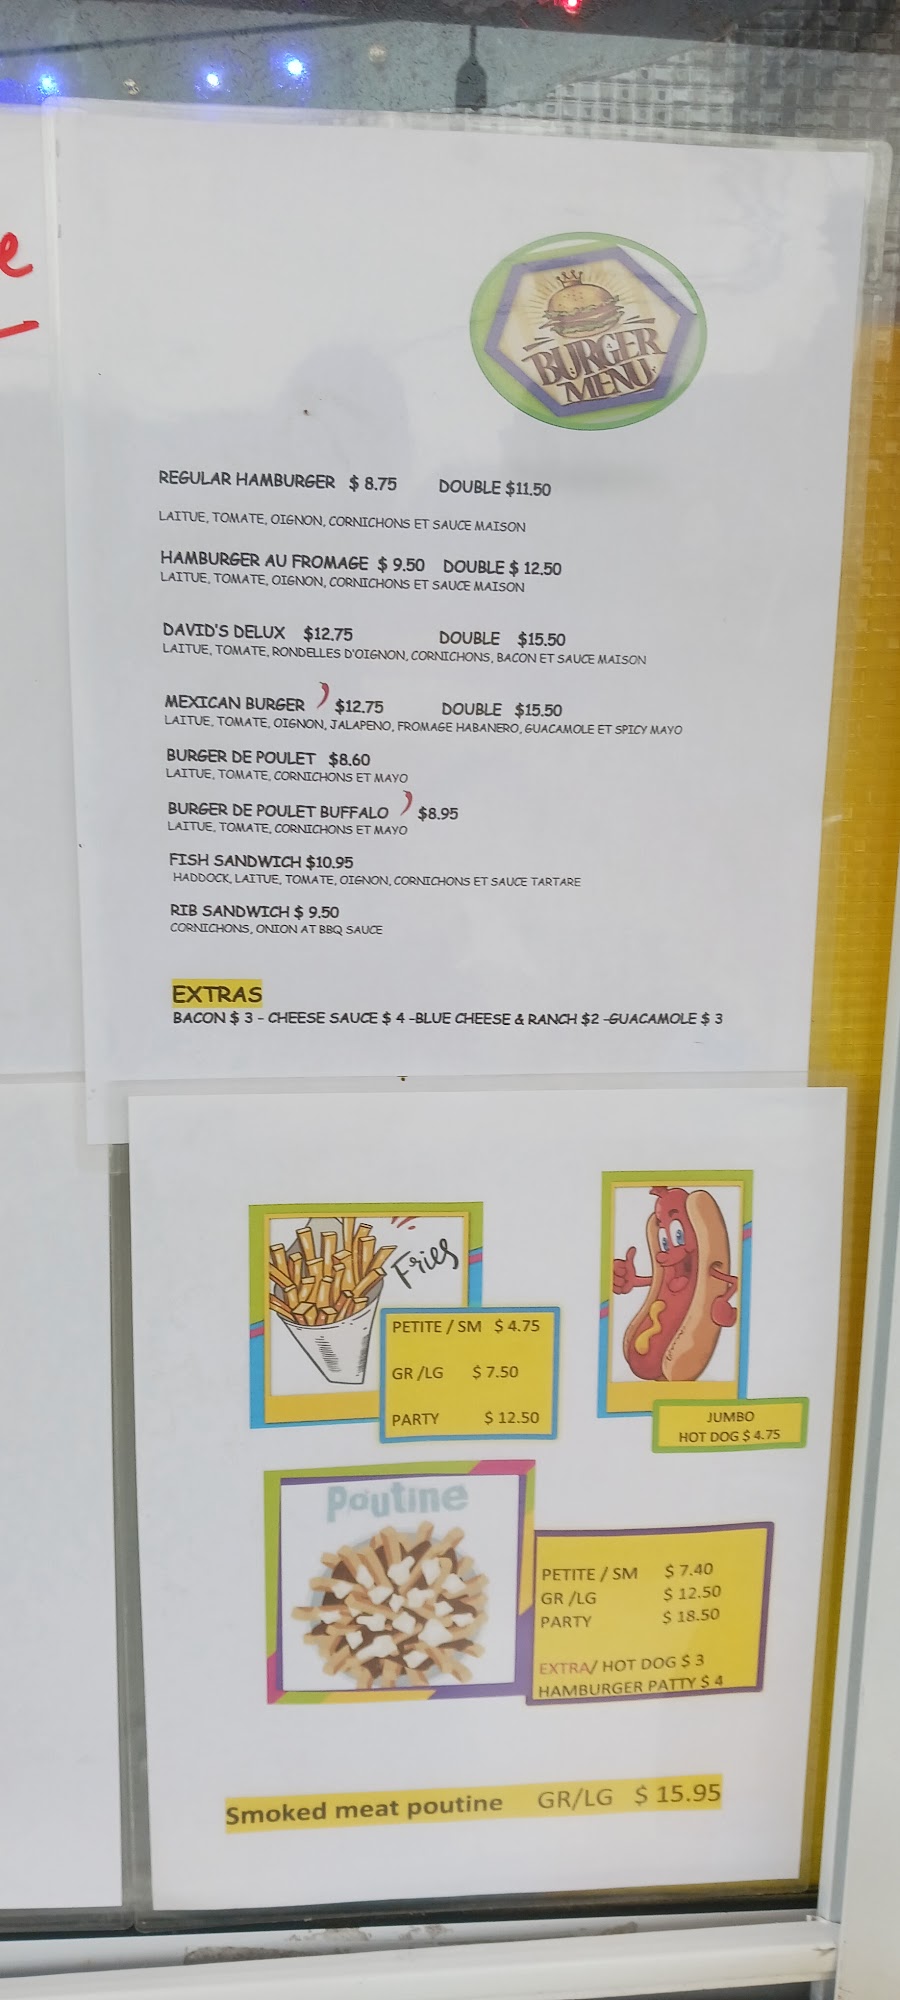 e
BURGER
MENU
REGULAR HAMBURGER $ 8.75 DOUBLE $11.50
LAITUE, TOMATE, OIGNON, CORNICHONS ET SAUCE MAISON
HAMBURGER AU FROMAGE $ 9.50 DOUBLE $ 12.50
LAITUE, TOMATE, OIGNON, CORNICHONS ET SAUCE MAISON
DAVID'S DELUX $12.75 DOUBLE $15.50
LAITUE, TOMATE, RONDELLES D'OIGNON, CORNICHONS, BACON ET SAUCE MAISON
MEXICAN BURGER $12.75 DOUBLE $15.50
LAITUE, TOMATE, OIGNON, JALAPENO, FROMAGE HABANERO, GUACAMOLE ET SPICY MAYO
BURGER DE POULET $8.60
LAITUE, TOMATE, CORNICHONS ET MAYO
BURGER DE POULET BUFFALO $8.95
LAITUE, TOMATE, CORNICHONS ET MAYO
FISH SANDWICH $10.95
HADDOCK, LAITUE, TOMATE, OIGNON, CORNICHONS ET SAUCE TARTARE
RIB SANDWICH $ 9.50
CORNICHONS, ONION AT BBQ SAUCE
EXTRAS
BACON $ 3 - CHEESE SAUCE $ 4 -BLUE CHEESE & RANCH $2 -GUACAMOLE $ 3
Fries
PETITE / SM $ 4.75
GR /LG $ 7.50
PARTY $ 12.50
JUMBO
HOT DOG $ 4.75
Poutine
PETITE / SM $ 7.40
GR /LG $ 12.50
PARTY $ 18.50
EXTRA/ HOT DOG $ 3
HAMBURGER PATTY $ 4
Smoked meat poutine GR/LG $ 15.95